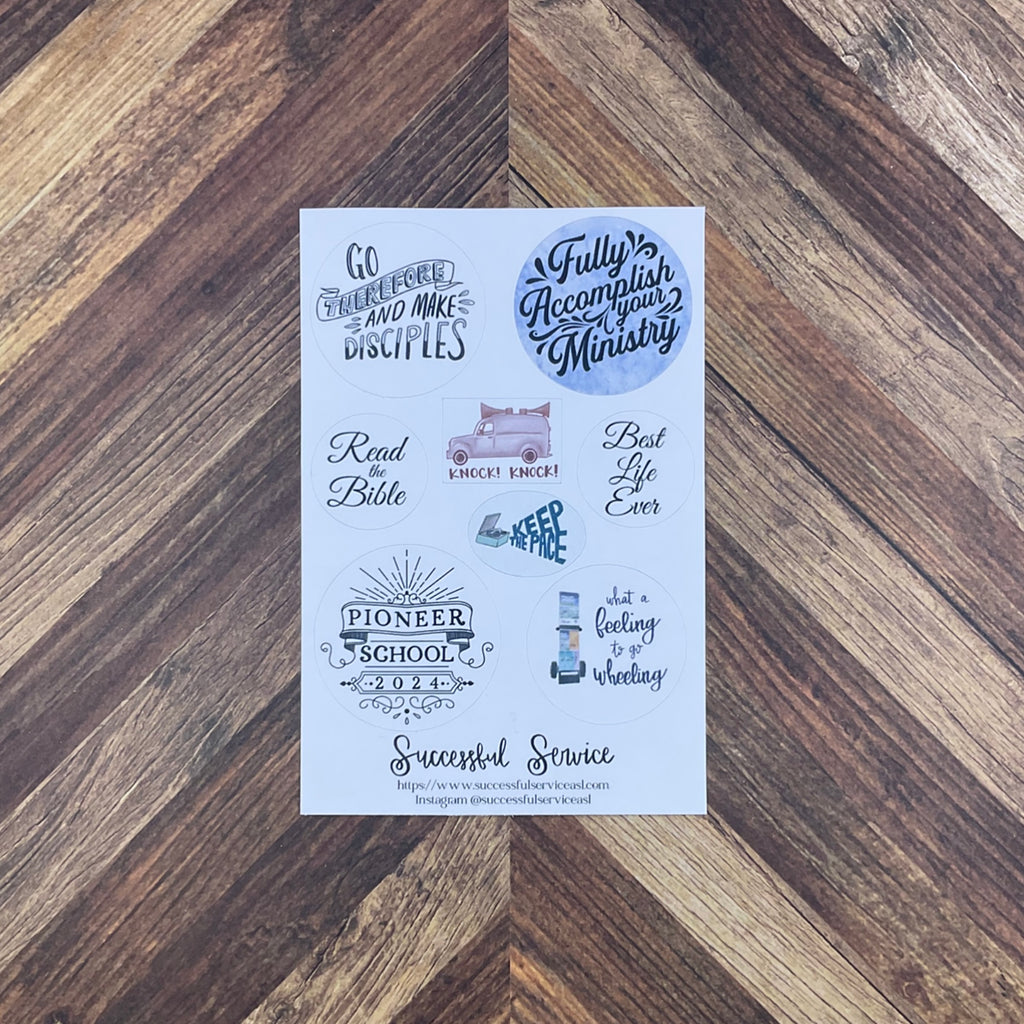 GO
THEREFORE
AND MAKE
DISCIPLES
Fully
Accomplish
your
Ministry
Read
the
Bible
KNOCK! KNOCK!
Best
Life
Ever
KEEP
THE PACE
PIONEER
SCHOOL
2024
what a
feeling
to go
wheeling
Successful Service
https://www.successfulserviceasl.com
Instagram @successfulserviceasl